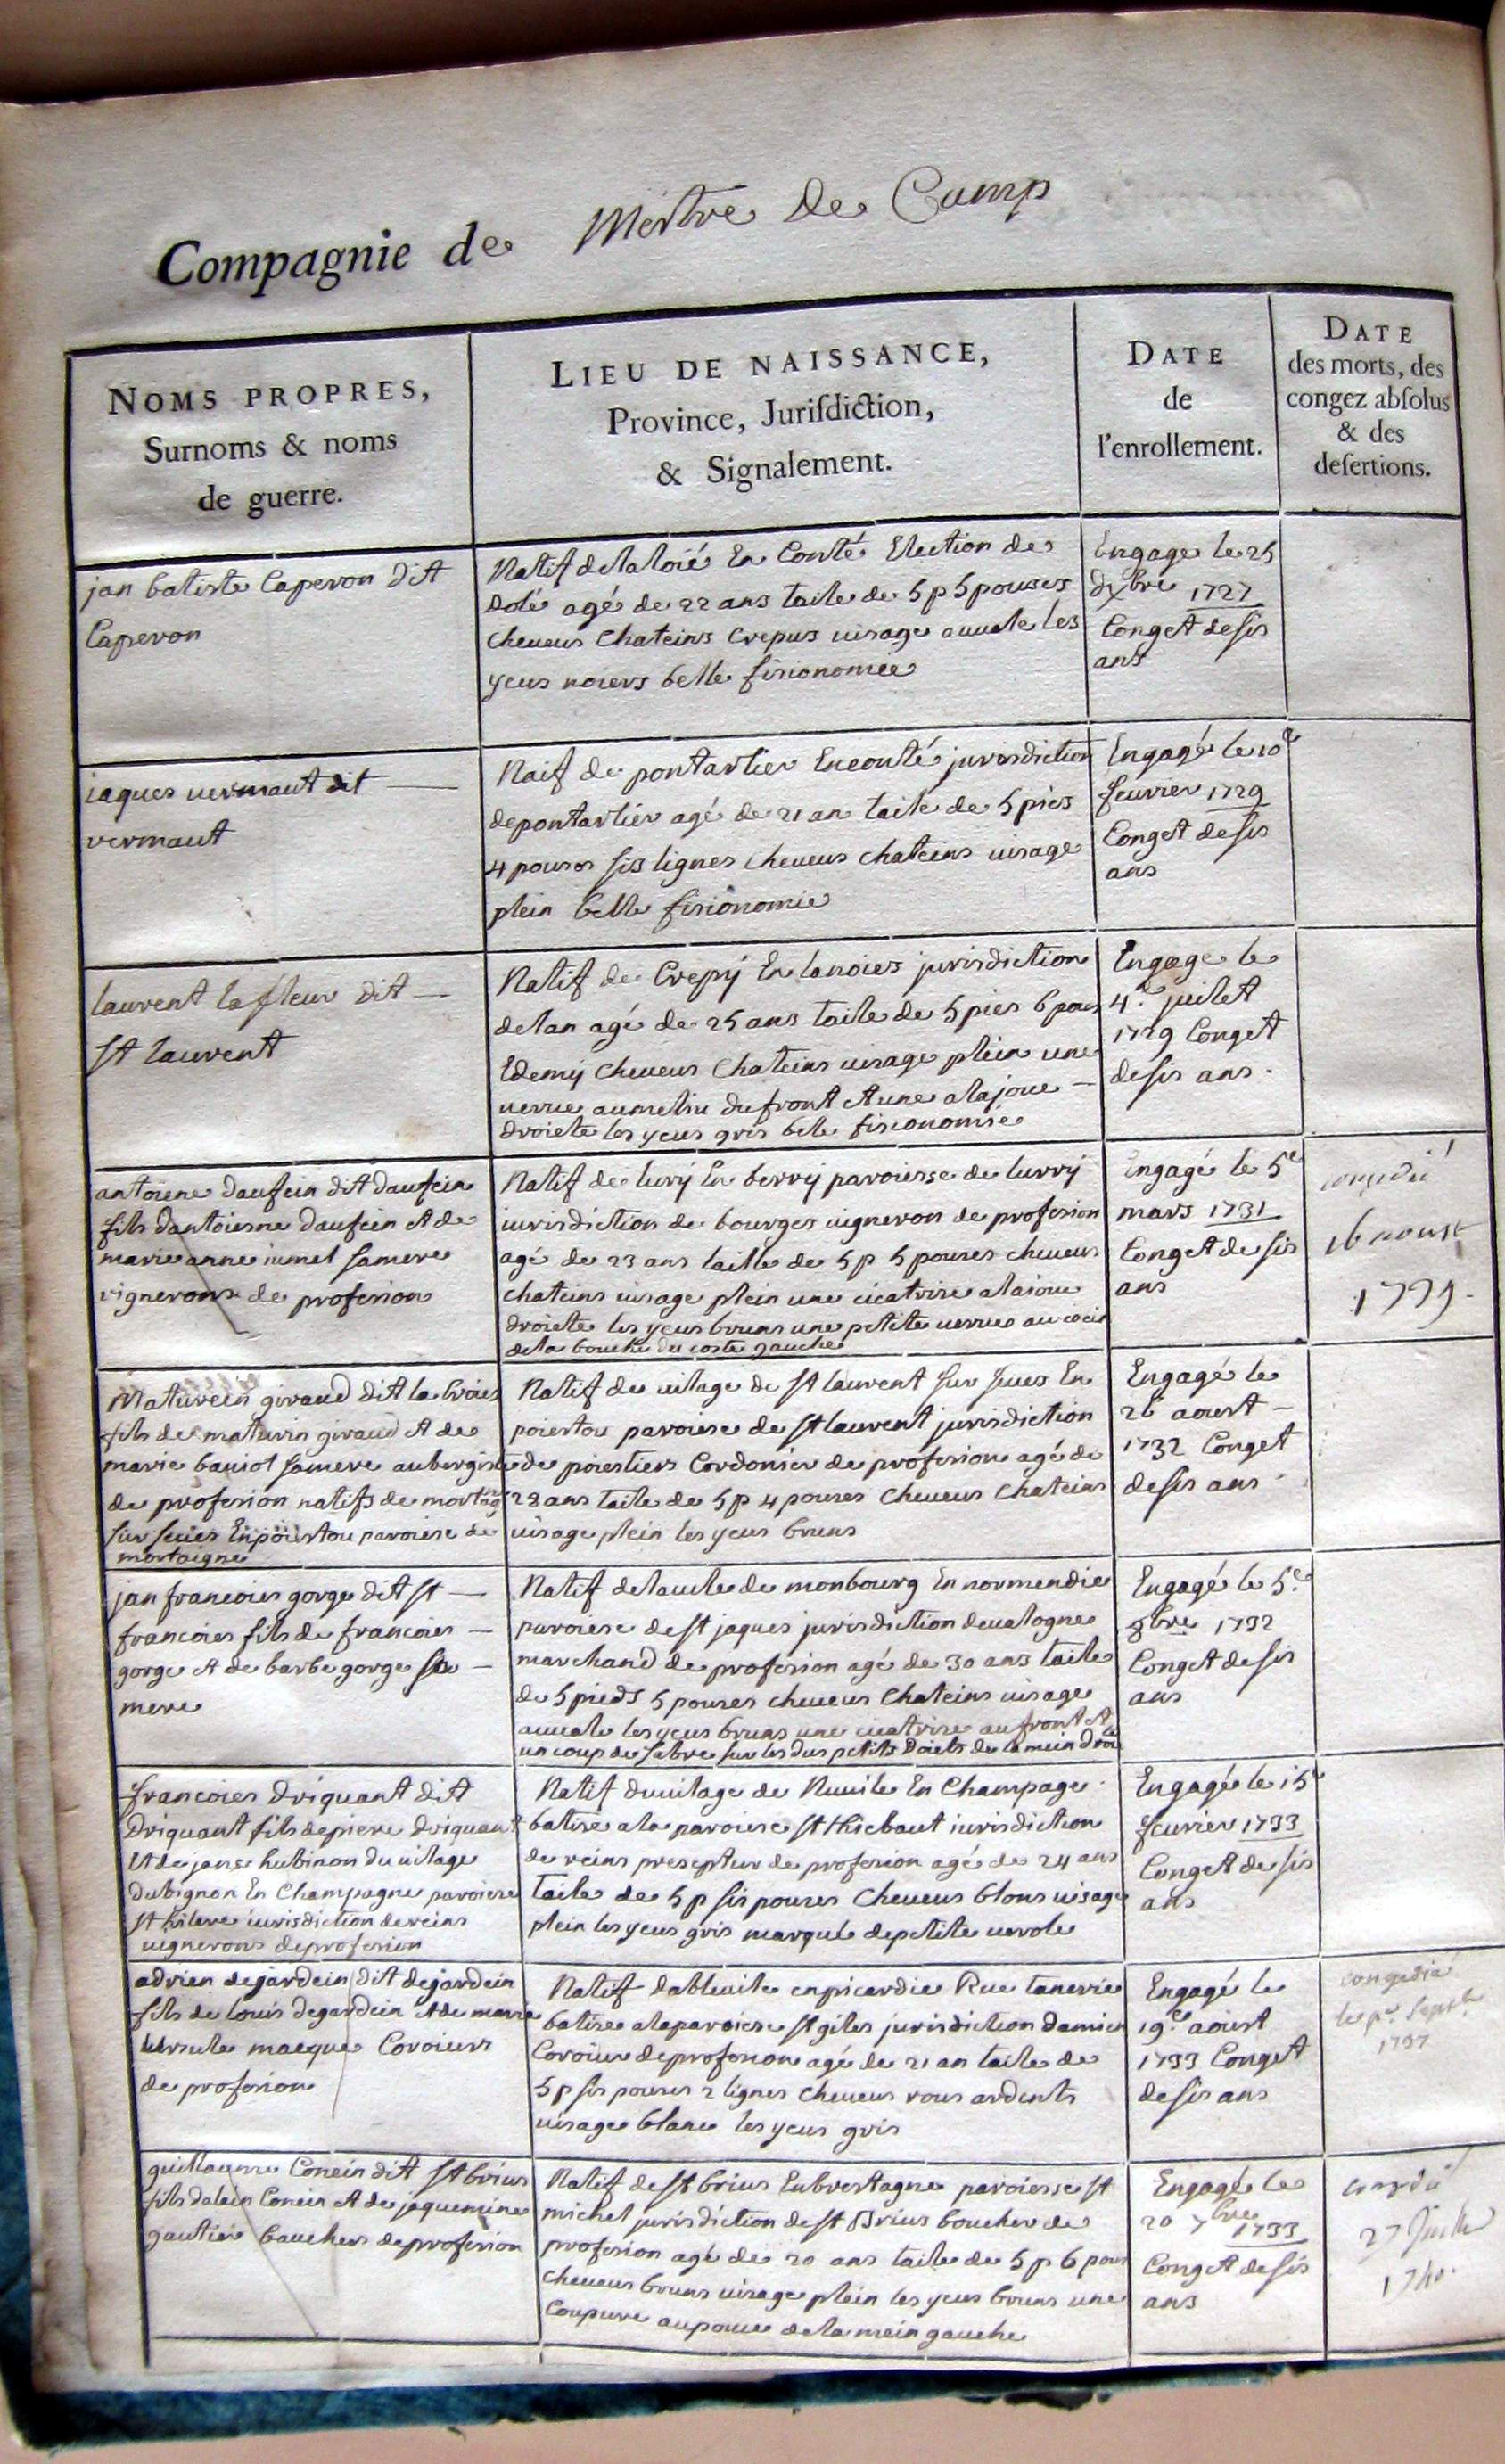 Compagnie de Mestre de Camp
NOMS PROPRES,
Surnoms & noms
de guerre.
LIEU DE NAISSANCE,
Province, Jurisdiction,
& Signalement.
DATE
de
l'enrollement.
DATE
des morts, des
congez absolus
& des
desertions.
jan batiste Caperon dit
Caperon
Natif de la loié En Conté Election de
dole agé de 22 ans taile de 5 p 5 pouses
cheueus chateins crepus uisage auuale les
yeus noiers belle fisionomiee
Engage le 25
dxbre 1727
Conget de sis
ans
iaques uermaut dit
vermaut
Naif de pontarlier En conté jurisdiction
de pontarlier agé de 21 an taile de 5 pies
4 pouses sis lignes cheueus chateins uisage
plein belle fisionomie
Engagé le 10e
feurier 1729
Conget de sis
ans
laurent la fleur dit
st laurent
Natif de Crepij En lanoies jurisdiction
de lan agé de 25 ans taile de 5 pies 6 pous
Edemij cheueus chateins uisage plein une
uerue au melieu du front et une a la joue
droiete les yeus gris bele fisionomie
Engage le
4e juilet
1729 Conget
de sis ans
antoiene daufein dit daufein
fils dantoiene daufein et de
marie anne iumel samere
vignerons de profesion
Natif de lurij En berrij paroiesse de lurrij
iurisdiction de bourges uigneron de profesion
agé de 23 ans taille de 5 p 5 pouses cheueus
chateins uisage plein une cicatrise a la ioue
droiete les yeus bruns une petite uerrue au coin
de la bouche du coste gauche
Engagé le 5e
mars 1731
Conget de sis
ans
congedié
16 aoust
1739
Maturein giraud dit la
fils de maturin giraud et de
marie samere aubergiste
de profesion natifs de mortag
sur seues En pouestou paroiese de
mortaigne
Natif du uilage de st laurent sur seues En
poiestou paroiese de st laurent jurisdiction
de poiestiers Cordonier de profesion agé de
28 ans taile de 5 p 4 pouses cheueus chateins
uisage plein les yeus bruns
Engagé le
26 aoust
1732 Conget
de sis ans
jan francoies gorge dit st
francoies fils de francoies
gorge et de barbe gorge sa
mere
Natif de la uile de monbourg En normendie
paroiese de st jaques jurisdiction deualogne
marchand de profesion agé de 30 ans taile
de 5 pieds 5 pouses cheueus chateins uisage
auuale les yeus bruns une cicatrise au front et
un coup de sabre sur les dus petits doiets de la mein droi
Engagé le 5e
8bre 1732
Conget de sis
ans
francoies driquant dit
driquant fils de piere driquant
et de jane hubinon du uilage
dubignon En Champagne paroiese
st hilere iurisdiction de reins
uignerons de profesion
Natif du uilage de Nuuile En Champage
batise a la paroiese st thiebaut iurisdiction
de reins presepteur de profesion agé de 24 ans
taile de 5 p sis pouses cheueus blons uisage
plein les yeus gris marqué de petite uerole
Engagé le 15e
feurier 1733
Conget de sis
ans
adrien degardein dit degardein
fils de louis degardein et de marie
ursule maeque Coroieurs
de profesion
Natif dabbeuile en picardie Rue tanerie
batise a la paroiese st giles jurisdiction damien
Coroieur de profesion agé de 21 an taile de
5 p sis pouses 2 lignes cheueus rous ardents
uisage blanc les yeus gris
Engagé le
19e aoust
1733 Conget
de sis ans
congedié
le pr. Septbr
1737
guillaume Conein dit st brieus
fils dalein Conein et de jaquemine
gautier bouchers de profesion
Natif de st brieus En brestagne paroiesse st
michel jurisdiction de st Brieus boucher de
profesion agé de 20 ans taile de 5 p 6 pous
cheueus bruns uisage plein les yeus bruns une
Coupure au pouce de la mein gauche
Engagé le
20 7bre
1733
Conget de sis
ans
congedié
27 Juillet
1740